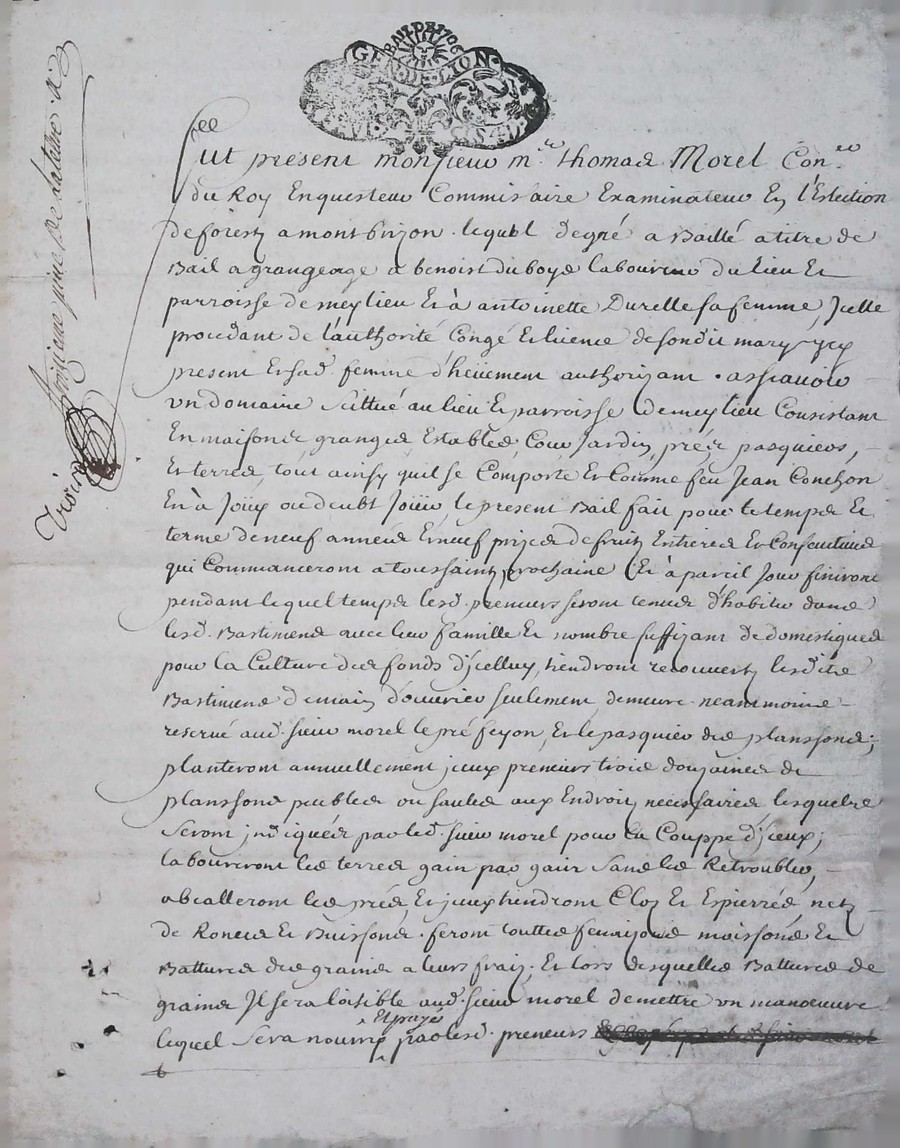 BAIL DE 1706
GEN. DE LION
Fut present monsieur mr. thomas Morel Con.er
du Roy Enquesteur Commissaire Examinateur En l'Eslection
de forestz a montbrizon. lequel de gré a Baillé a titre de
Bail a grangeage a benoist duboys laboureur du lieu Et
parroisse de meylieu Et à antoinette Durelle sa femme, Icelle
procedant de l'authorité Congé Et licence de sondit mary Icy
present Et sad. femme d'heuement authorizant. assavoir
un domaine scittué au lieu Et parroisse de meylieu Consistant
En maisons granges Estables, Cour, Jardin, prés pasquiers,
Et terres, tout ainsy quil se Comporte Et Comme feu Jean Conchon
En à Joüy ou deubt Joüir, le present Bail fait pour le temps Et
terme de neuf années Et neuf prizes de fruitz Entieres Et Consecutives
qui Commanceront a toussaintz prochaine Et à pareil Jour finiront
pendant lequel temps lesd. preneurs seront tenus d'habiter dans
lesd. Bastimens avec leur famille Et nombre suffizant de domestiques
pour la Culture des fonds d'Icelluy, tiendront recouvertz lesdits
Bastimens de main d'ouvrier seulement, demeure neantmoins
reservé aud. sieur morel le pré feyon, Et le pasquier des planssons;
planteront annuellement Iceux preneurs trois douzaines de
planssons peubles ou saules aux Endroitz necessaires lesquels
seront Indiqués par led. sieur morel pour la Couppe d'Iceux;
laboureront les terres gain par gain sans les Retroubler,
abealleront les prés, Et Iceux tiendront Clos Et Espierrés netz
de Ronces Et Buissons. feront touttes fenaizons moissons Et
Battures des grains a leurs fraiz. Et lors desquelles Battures de
grains Il sera loisible aud. sieur morel de mettre un manoeuvre
Et payé
lequel sera nourry par lesd. preneurs